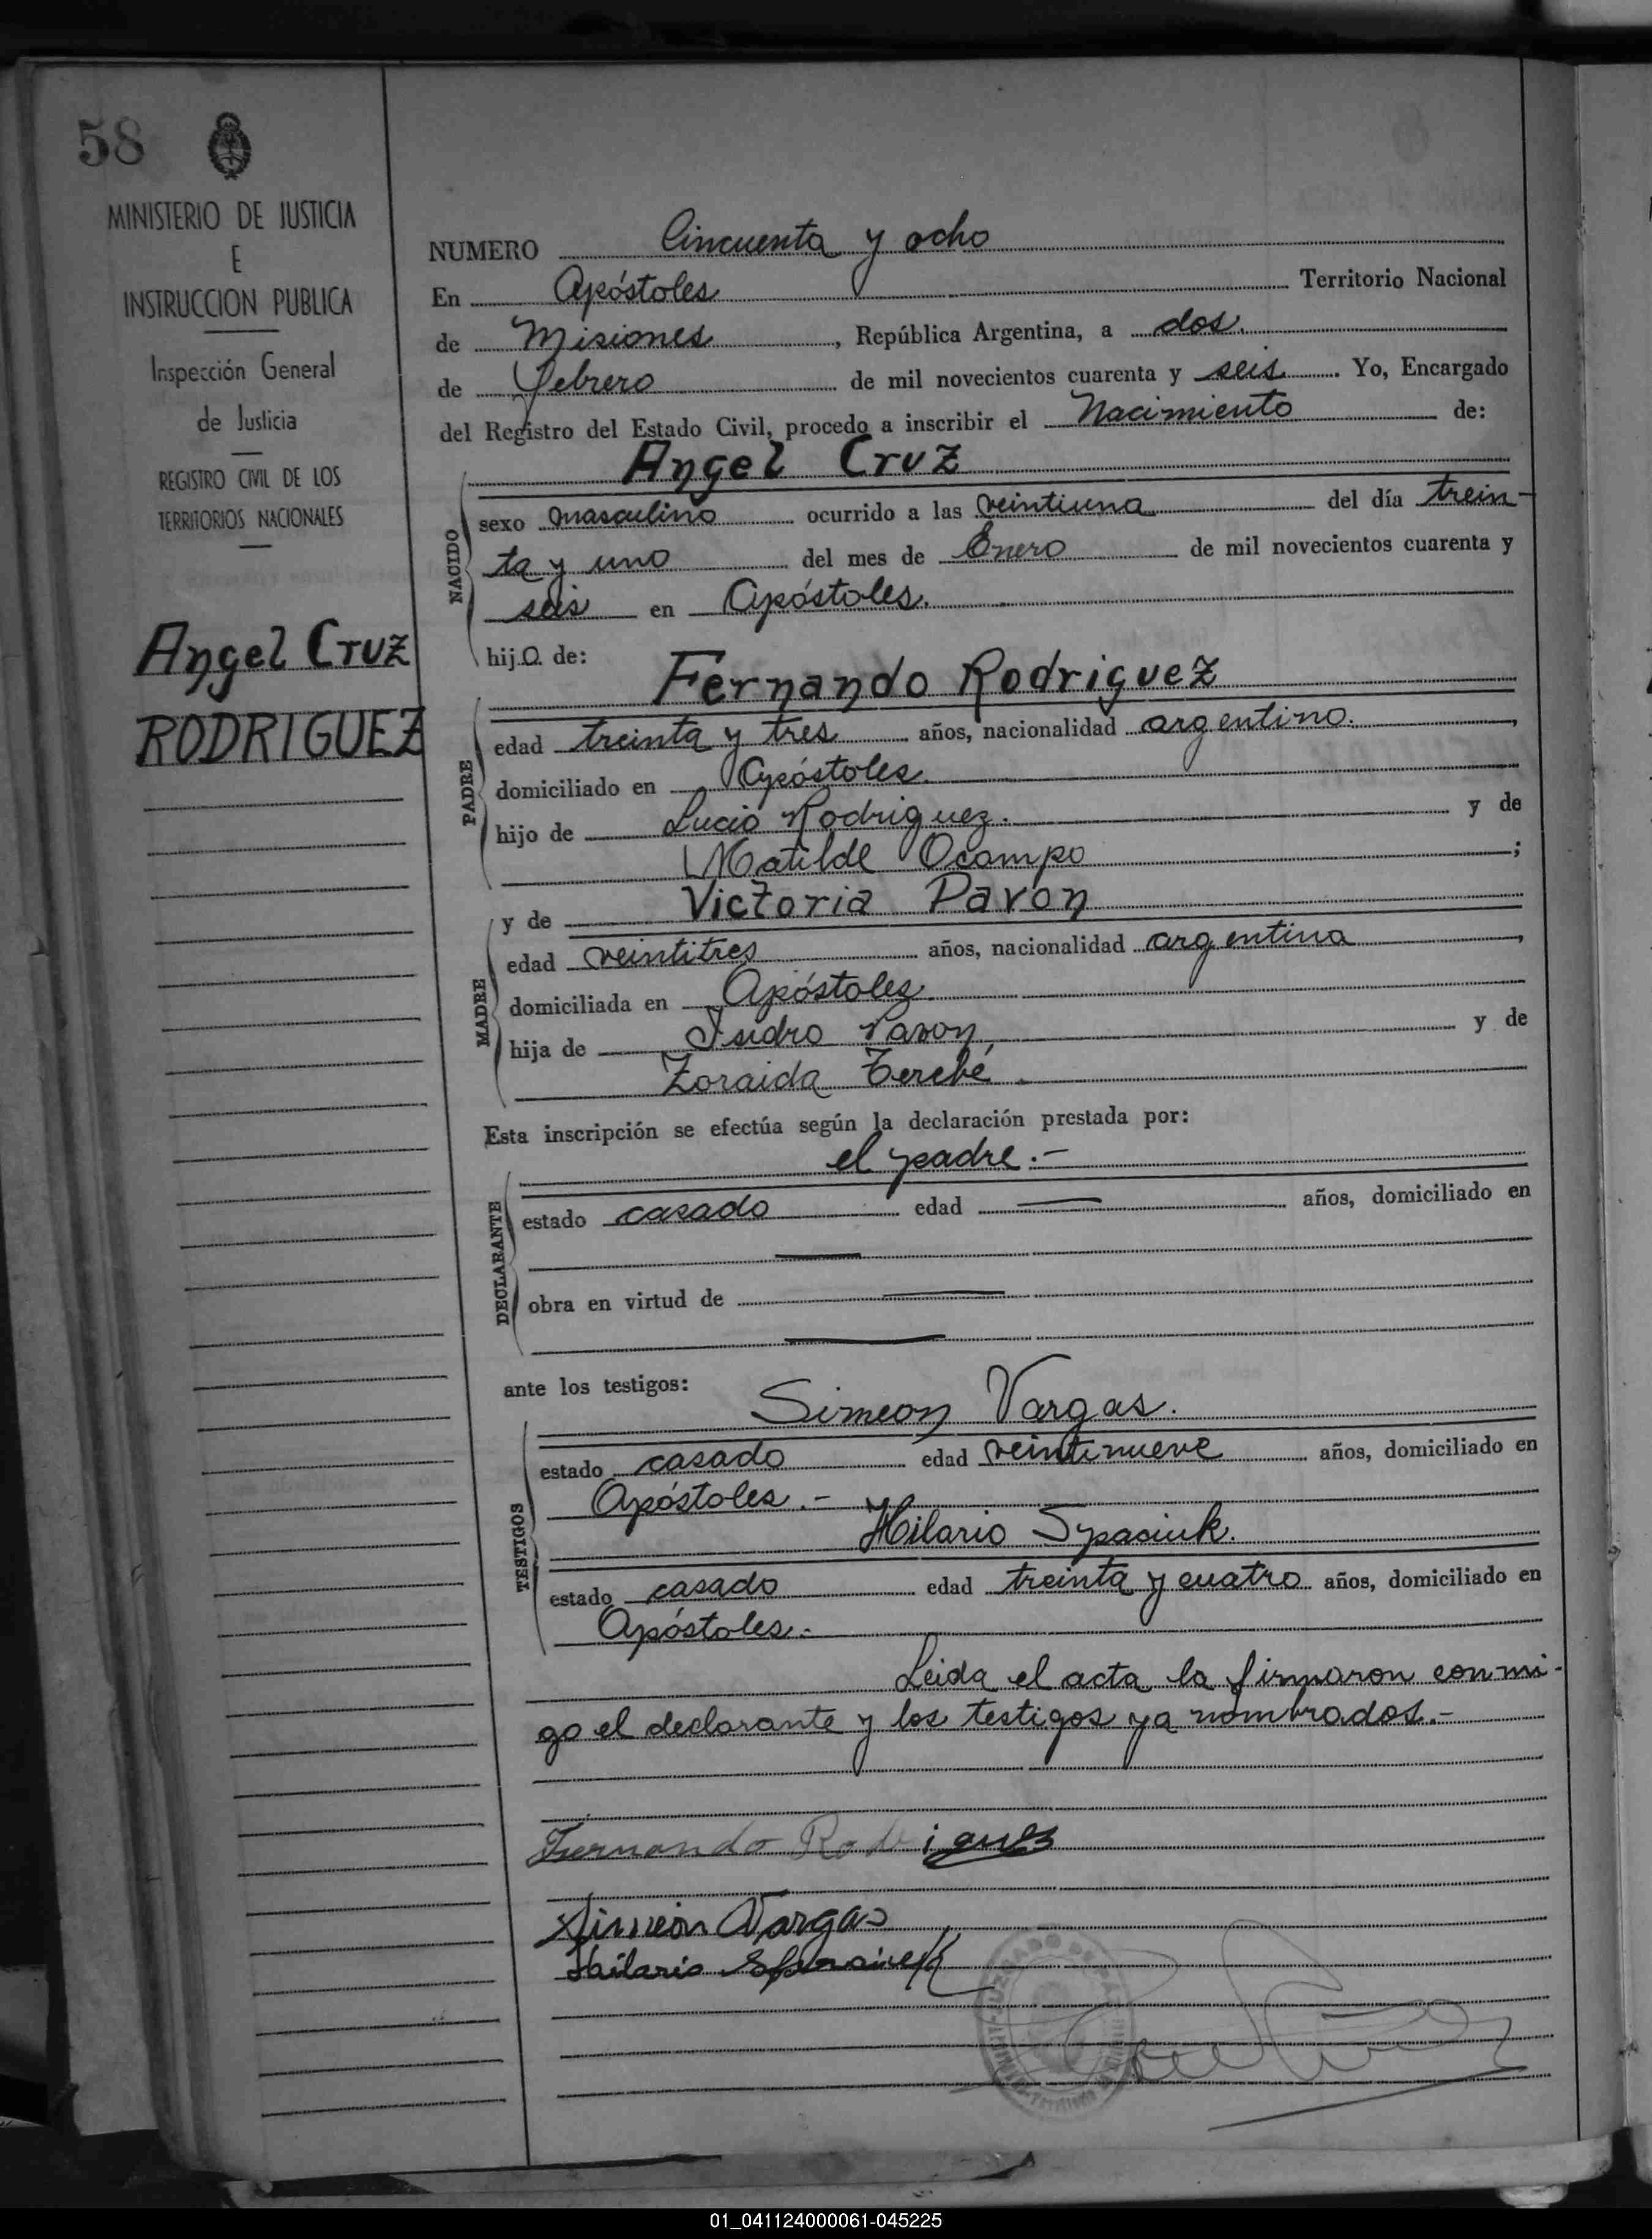 58
MINISTERIO DE JUSTICIA
E
INSTRUCCION PUBLICA
Inspección General
de Justicia
REGISTRO CIVIL DE LOS
TERRITORIOS NACIONALES
Angel Cruz
RODRIGUEZ
NUMERO Cincuenta y ocho
En Apóstoles Territorio Nacional
de Misiones, República Argentina, a dos.
de febrero de mil novecientos cuarenta y seis. Yo, Encargado
del Registro del Estado Civil, procedo a inscribir el Nacimiento de:
Angel Cruz
NACIDO
sexo masculino ocurrido a las veintiuna del día trein-
ta y uno del mes de Enero de mil novecientos cuarenta y
seis en Apóstoles.
hijo de:
Fernando Rodriguez
PADRE
edad treinta y tres años, nacionalidad argentino.,
domiciliado en Apóstoles.
hijo de Lucio Rodriguez. y de
Matilde Ocampo;
y de Victoria Pavon
MADRE
edad veintitres años, nacionalidad argentina,
domiciliada en Apóstoles.
hija de Isidro Pavon, y de
Zoraida Terebé.
Esta inscripción se efectúa según la declaración prestada por:
el padre.-
DECLARANTE
estado casado edad años, domiciliado en
obra en virtud de
ante los testigos:
Simeon Vargas.
TESTIGOS
estado casado edad veintinueve años, domiciliado en
Apóstoles.-
Hilario Spasiuk.
estado casado edad treinta y cuatro años, domiciliado en
Apóstoles.-
Leida el acta la firmaron conmi-
go el declarante y los testigos ya nombrados.-
Fernando Rodrigues
Simeon Vargas
Hilario
01_041124000061-045225